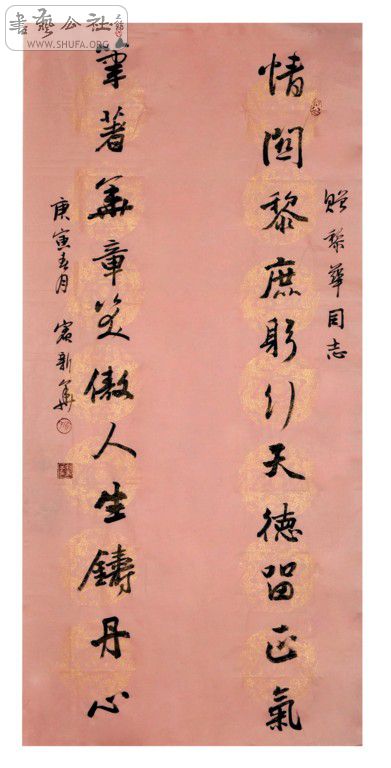 書藝公社
WWW.SHUFA.ORG
贈黎華同志
情関黎庶躬行天德留正氣
筆著華章笑傲人生鑄丹心
庚寅春月 新華